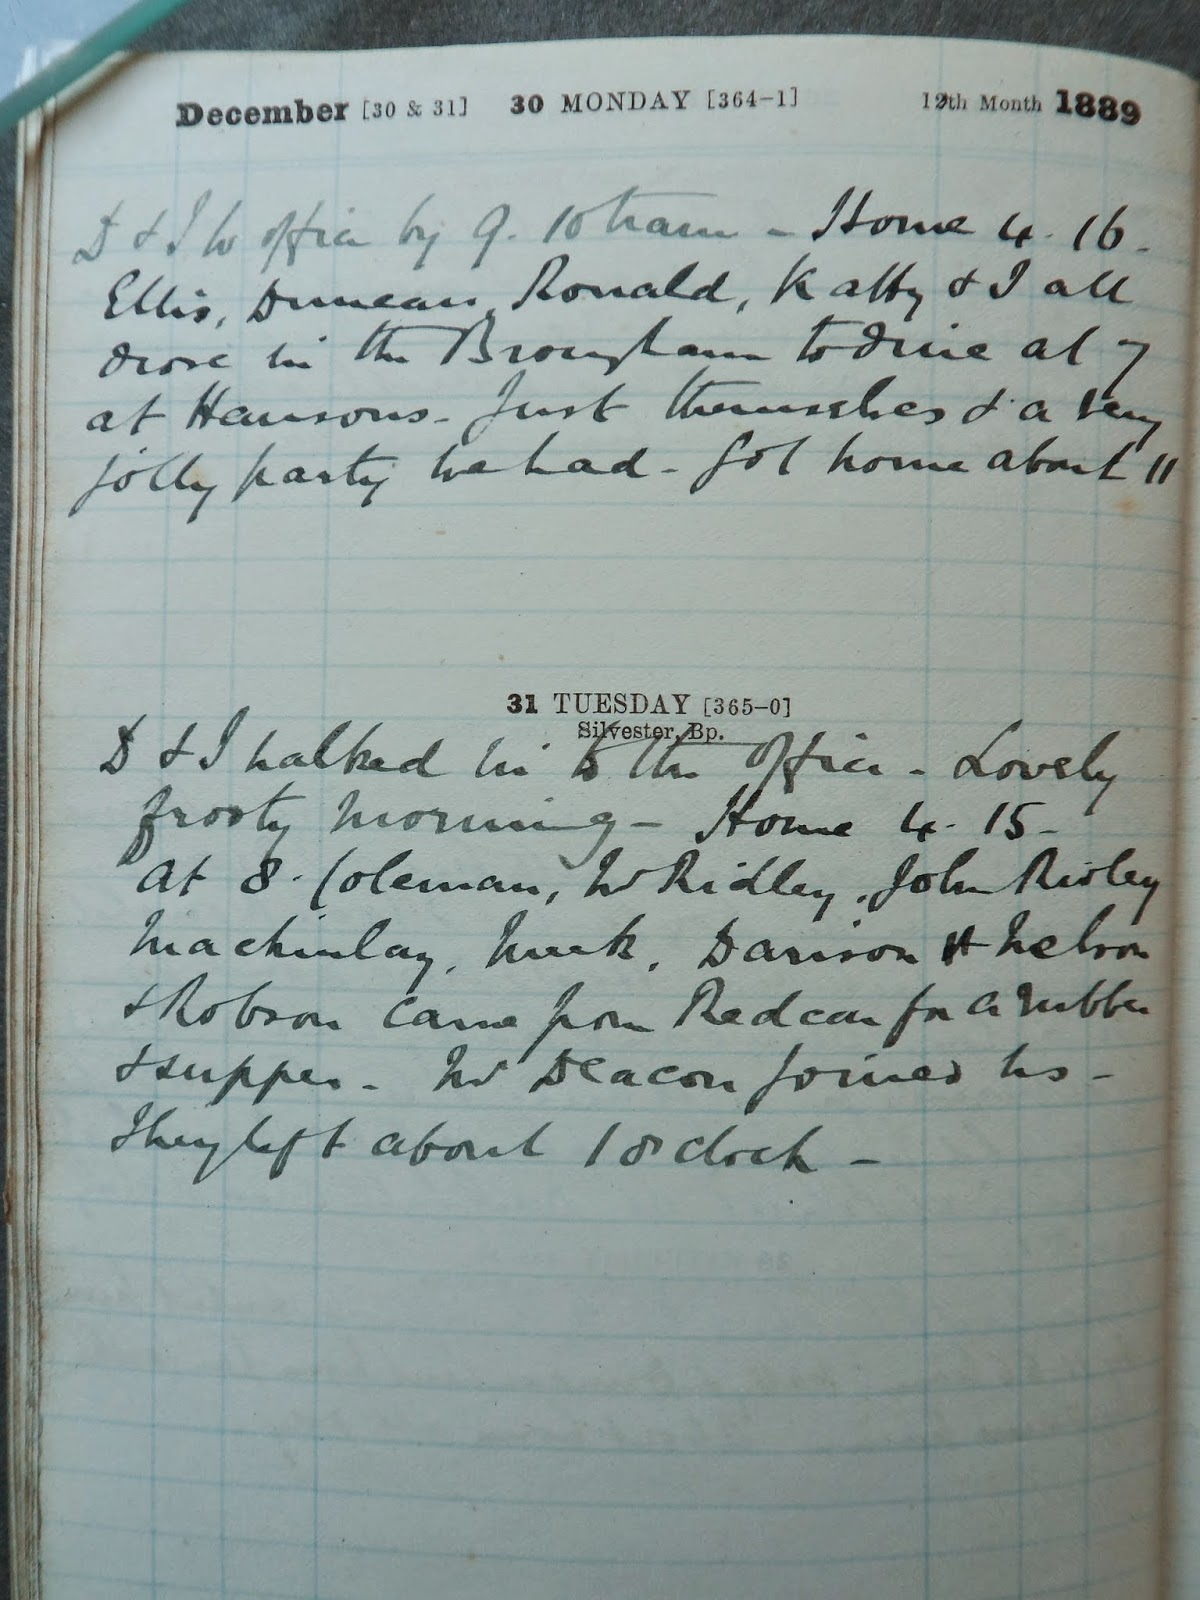 December [30 & 31] 30 MONDAY [364-1] 12th Month 1889
D & I to office by 9.10 tram - Home 4.16.
Ellis, Duncan, Ronald, Katty & I all
drove in the Brougham to dine at 7
at Hansons - Just themselves & a very
jolly party we had - Got home about 11
31 TUESDAY [365-0]
Silvester, Bp.
D & I walked in to the office - Lovely
frosty morning - Home 4.15 -
At 8. Coleman, W Ridley, John Ridley
Mackinlay, Meek, Davison H Nelson
& Robson came from Redcar for a rubber
& supper - W Deacon joined us -
They left about 1 o'clock -